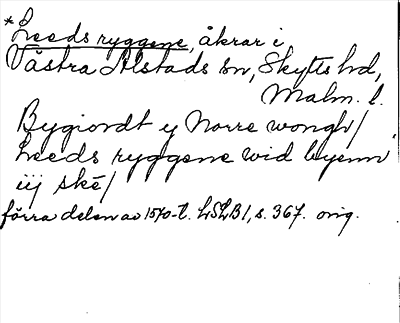 *Leeds ryggene, åkrar i
Västra Alstads sn, Skytts hd,
Malm. l.
Bygiordt y Norre wongh/
Leeds ryggene wid byenn
iij ske/
förra delen av 1570-t. LSLB1, s. 367. orig.